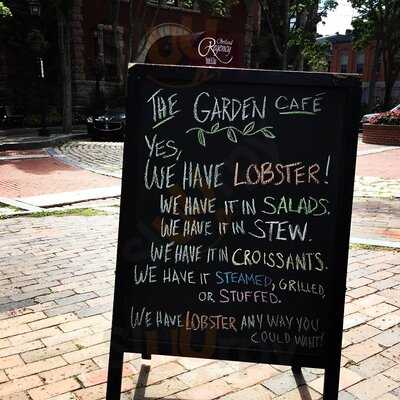 Portland
Regency
THE GARDEN CAFÉ
YES,
WE HAVE LOBSTER!
WE HAVE IT IN SALADS.
WE HAVE IT IN STEW.
WE HAVE IT IN CROISSANTS.
WE HAVE IT STEAMED, GRILLED,
OR STUFFED.
WE HAVE LOBSTER ANY WAY YOU
COULD WANT!